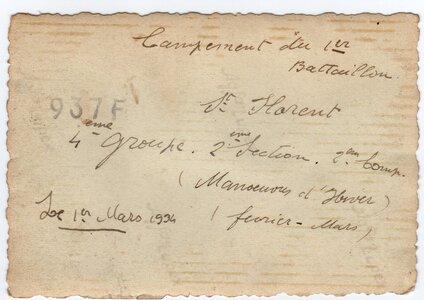 Campement du 1er
Battaillon.
937F
St Florent
4eme groupe. 2eme Section. 2eme Comp.
(Manoeuvres d'Hiver)
Le 1er Mars 1934
(fevrier-Mars)